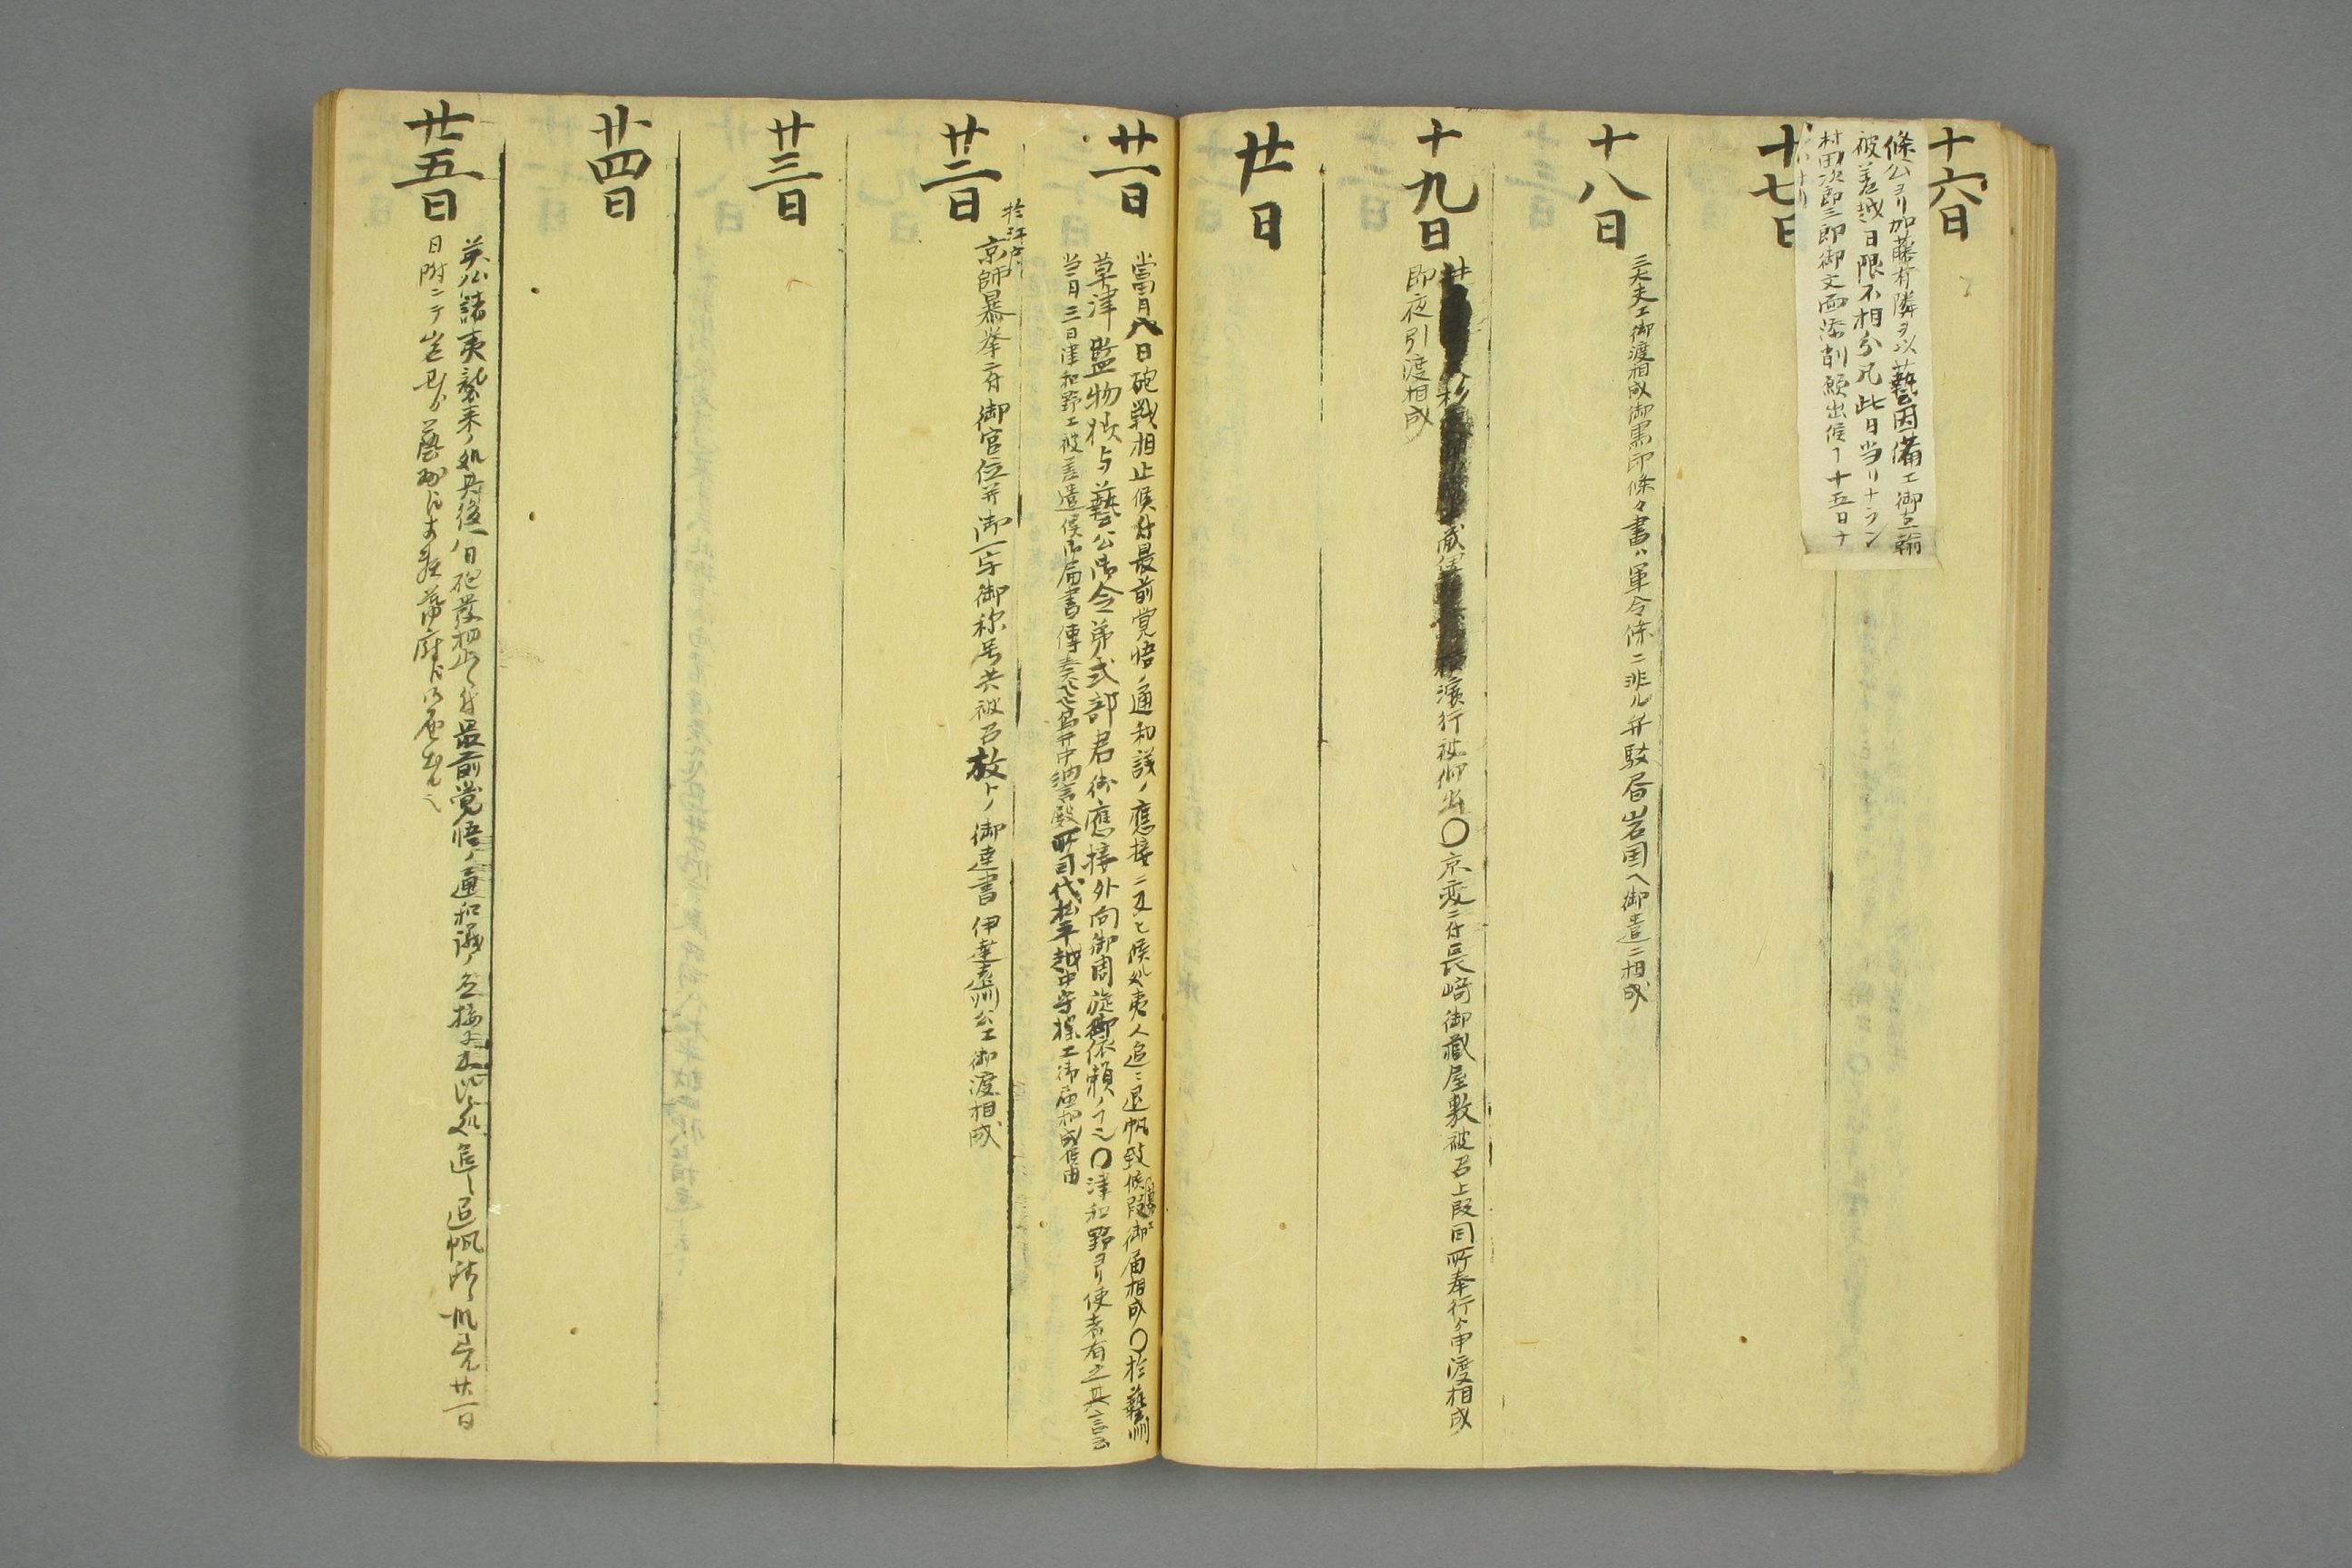 十六日
條公ヨリ加藤有隣ヲ以藝因備エ御直翰
被差越日限不相分凡此日当リナラン
村田次郎三郎御文面添削願出候ヿ十五日ナ
十七日
十八日
三大夫エ御渡相成御黒印條々書ハ軍令條ニ非ル弁駁岩国ヘ御遣ニ相成
十九日
濱行被仰出〇京変ニ付長崎御蔵屋敷被召上段同所奉行ゟ申渡相成
即夜引渡相成
廿日
廿一日
當月八日砲戦相止候付最前覚悟ノ通和議ノ應接ニ及ヒ候処夷人追々退帆致候段御届相成〇於藝州
草津監物様与藝公御令弟式部君御應接外向御周旋御依頼ノヿ〇津和野ヨリ使者有之其言云
当月三日津和野エ被差遣候御届書傳奏飛鳥井中納言殿所司代松平越中守様エ御届相成候由
廿二日
於江戸
京師暴挙ニ付御官位并御一字御称号共被召放トノ御達書伊達遠州公エ御渡相成
廿三日
廿四日
廿五日
英仏諸夷襲来ノ処其後八日砲發相止候付最前覚悟ノ通和議ノ應接ニ及候処追々退帆廿一日
日附ニテ藝州幕府御届